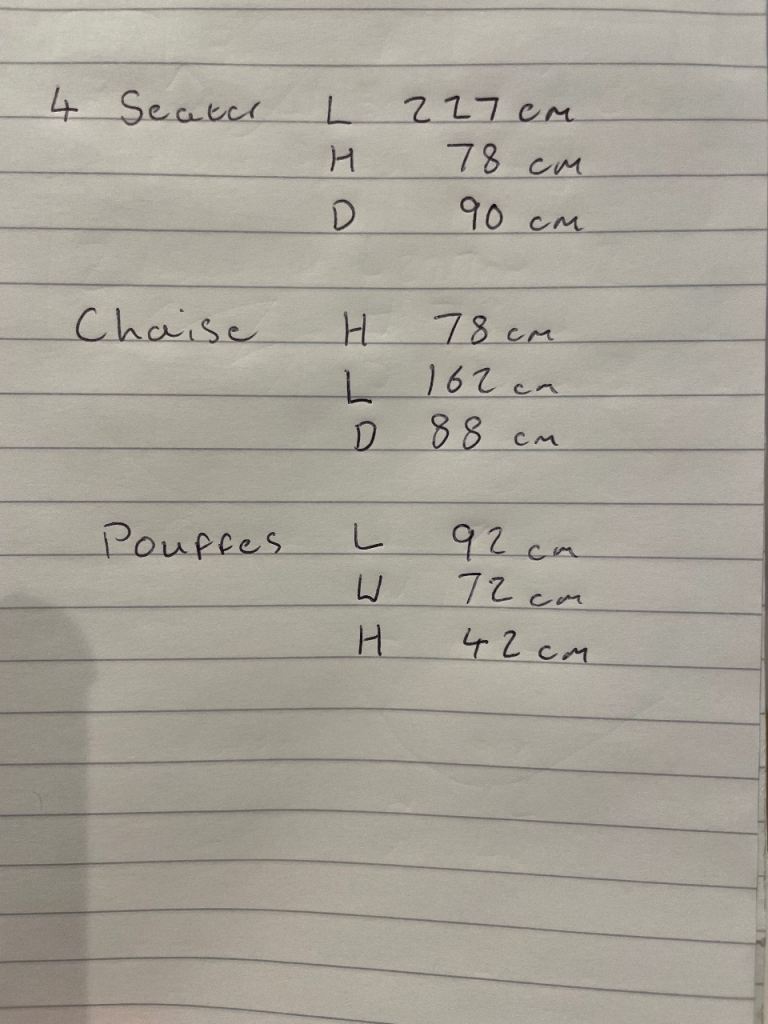 4 Seater L 227 cm
H 78 cm
D 90 cm
Chaise H 78 cm
L 162 cm
D 88 cm
Pouffes L 92 cm
W 72 cm
H 42 cm